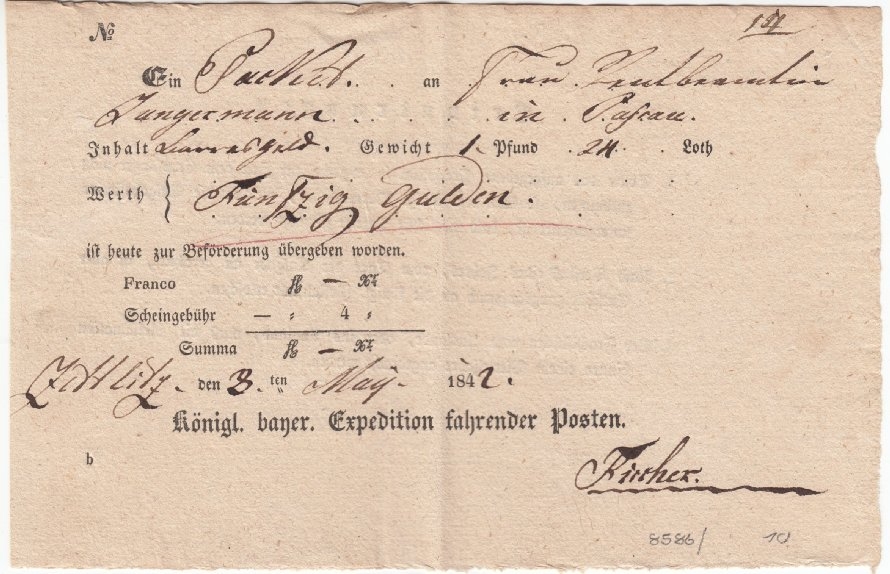 No 154
Ein Packet. an Frau Rentbeamtin
Langermann in Passau.
Inhalt Baaresgeld. Gewicht 1. Pfund 24 Loth
Werth { Fünfzig Gulden.
ist heute zur Beförderung übergeben worden.
Franco fl. — xr.
Scheingebühr — „ 4 „
Summa fl. — xr.
den 3. ten May. 1842.
Königl. bayer. Expedition fahrender Posten.
b
8586/ 10